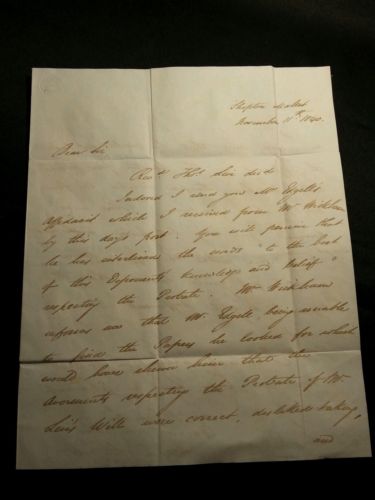 Shepton Mallet
November 11th 1840.
Dear Sir
Revd Thos. decd
Indorsed I send you Mr Edgell's
Affidavit which I received from Mr Wickham
by this day's post. You will perceive that
he has interlined the words "to the best
of this Exponents knowledge and belief"
respecting the Probate. Mr Wickham
informs me that Mr. Edgell being unable
to find the Papers he looked for which
would have shewn him that the
Averments respecting the Probate of Mr.
Will were correct, disliked taking,
and